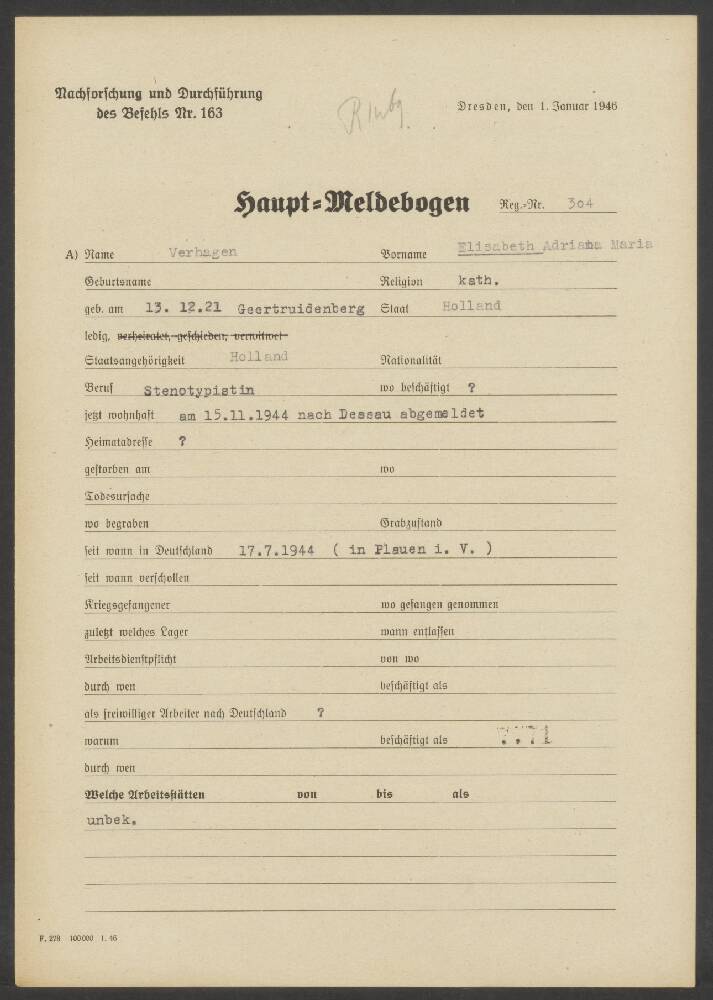 Nachforschung und Durchführung
des Befehls Nr. 163
Dresden, den 1. Januar 1946
Haupt=Meldebogen Reg.-Nr. 304
A) Name Verhagen Vorname Elisabeth Adriana Maria
Geburtsname Religion kath.
geb. am 13. 12.21 Geertruidenberg Staat Holland
ledig, verheiratet, geschieden, verwitwet
Staatsangehörigkeit Holland Nationalität
Beruf Stenotypistin wo beschäftigt ?
jetzt wohnhaft am 15.11.1944 nach Dessau abgemeldet
Heimatadresse ?
gestorben am wo
Todesursache
wo begraben Grabzustand
seit wann in Deutschland 17.7.1944 ( in Plauen i. V. )
seit wann verschollen
Kriegsgefangener wo gefangen genommen
zuletzt welches Lager wann entlassen
Arbeitsdienstpflicht von wo
durch wen beschäftigt als
als freiwilliger Arbeiter nach Deutschland ?
warum beschäftigt als
durch wen
Welche Arbeitsstätten von bis als
unbek.
F. 278 100000 1. 46